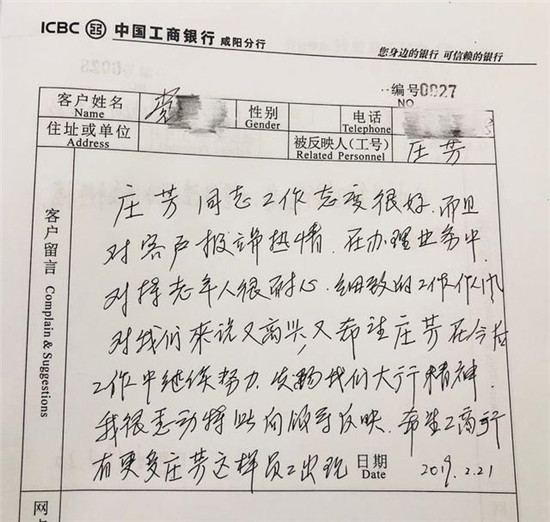 ICBC 中国工商银行 咸阳分行
您身边的银行 可信赖的银行
编号0027
NO
客户姓名 Name 性别 Gender 电话 Telephone
住址或单位 Address 被反映人(工号) Related Personnel 庄芳
客户留言 Complain & Suggestions
庄芳同志工作态度很好.而且
对客户报端热情.在办理业务中
对择老年人很耐心.细致的工作作风
对我们来说又高兴,又希望庄芳在今后
工作中继续努力.发扬我们大行精神.
我很感动特此向领导反映.希望工商行
有更多庄芳这样员工出现 日期 Date 2019.2.21
网